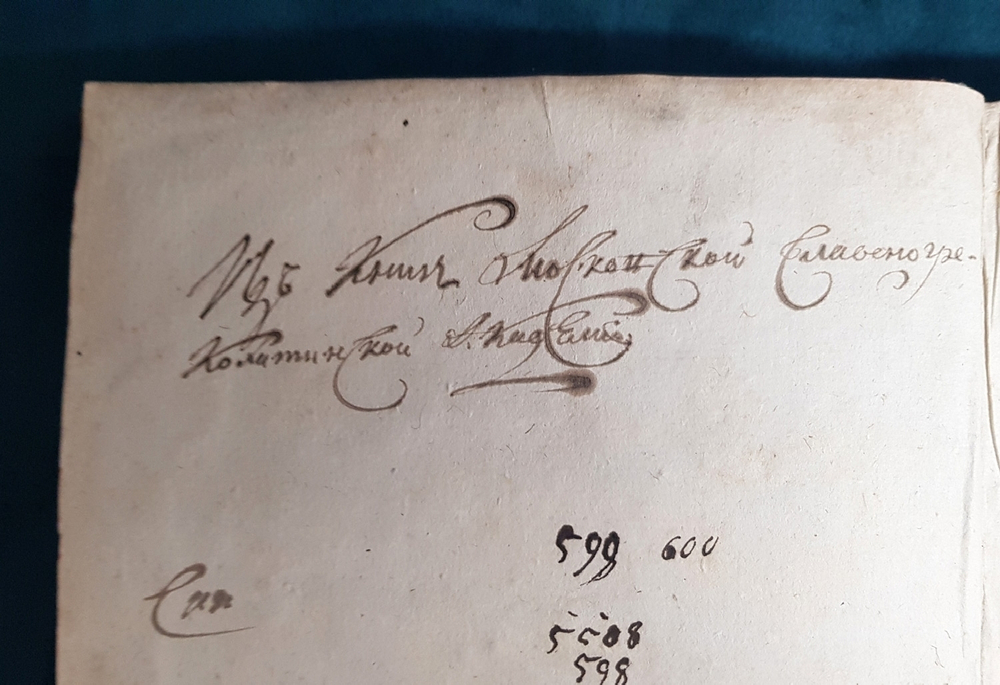 Изъ Книгъ Московской Славеногре-
колатинской Академіи
599 600
5508
598